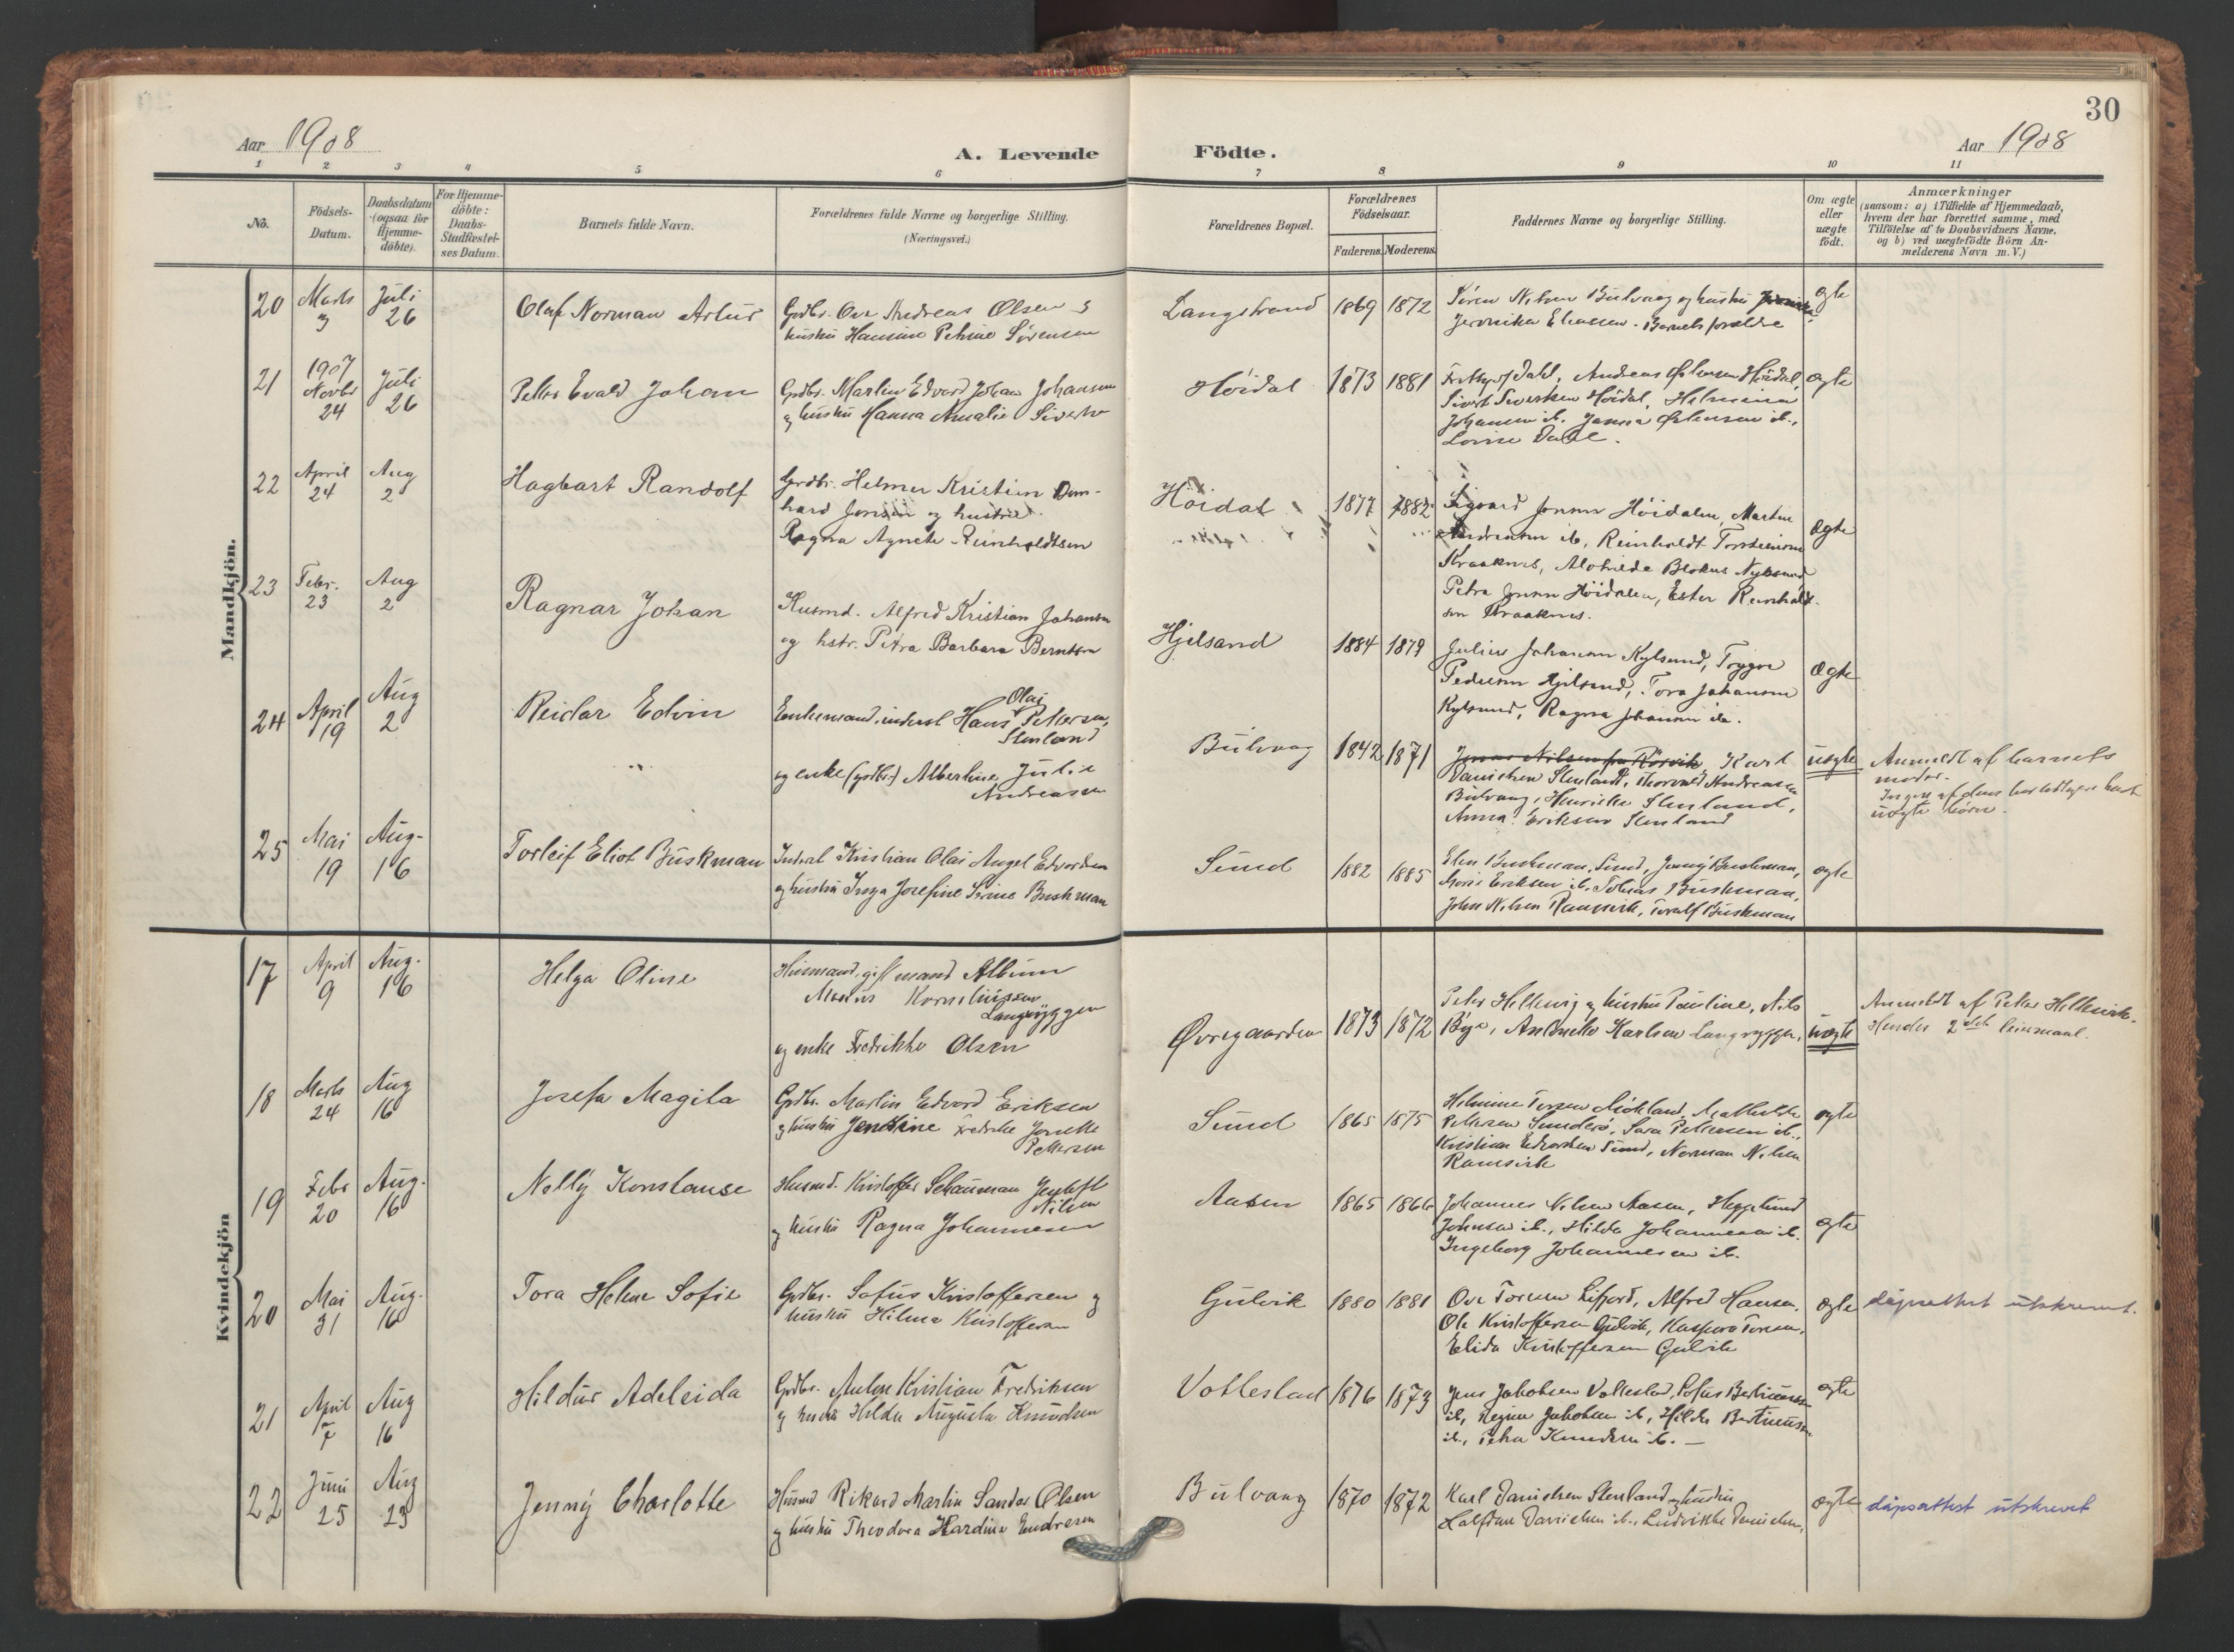 30
Aar 1908
A. Levende Födte.
Aar 1908
1 2 3 4 5 6 7 8 9 10 11
No.
Födsels-
Datum.
Daabsdatum
(ogsaa for
Hjemme-
döbte).
For Hjemme-
döbte:
Daabs-
Stadfæstel-
ses Datum.
Barnets fulde Navn.
Forældrenes fulde Navne og borgerlige Stilling.
(Næringsvei.)
Forældrenes Bopæl.
Forældrenes
Födselsaar.
Faderens. Moderens.
Faddernes Navne og borgerlige Stilling.
Om ægte
eller
uægte
födt.
Anmærkninger
(saasom: a) i Tilfælde af Hjemmedaab,
hvem der har forrettet samme, med
Tilföielse af to Daabsvidners Navne.
og b) ved uægtefödte Börn An-
melderens Navn m.V.)
Mandkjön.
20 Marts 3 Juli 26 Olaf Norman Artur
Grdbr. Ove Andreas Olsen
hustru Hansine Petrine Sörensen
Langstrand 1869 1872
Sören Nilsen Bulvaag og hustru
Jeronika Eliassen. Barnets forældre
ægte
21 1907 Novbr 24 Juli 26 Petter Evald Johan
Grdbr. Martin Edvard Johan Johansen
og hustru Hanna Amalie
Höidal 1873 1881
Dahl, Andreas Höidal,
Sivert Sivertsen Höidal, Helmina
Johansen ib.
Dahl.
ægte
22 April 24 Aug 2 Hagbart Randolf
Grdbr. Helmer Kristian
og hustru
Ragna Agnete Reinholdtsen
Höidal 1877 1882
Sigvard Jensen Höidalen, Martin
Andreasen ib, Reinholdt
Kraaknes, Blokus Nyksund
Petra Jensen Höidalen, Ester Reinholdt-
sen Kraaknes.
ægte
23 Febr. 23 Aug 2 Ragnar Johan
Husmd. Alfred Kristian Johansen
og hstr. Petra Barbara Berntsen
Hjelsand 1884 1879
Julius Johansen Nyksund, Trygve
Pedersen Hjelsand, Tora Johansen
Nyksund, Ragna Johansen ib.
ægte
24 April 19 Aug 2 Reidar Edvin
Enkemand, inderst Hans Olai Pettersen,
Stenland
og enke (grdbr.) Albertine Julie
Andreassen
Bulvaag 1842 1871
Jonas Nilsen fra Rörvik Karl
Danielsen Stenland, Thorvald Andreassen
Bulvaag, Henrikke Stenland,
Anna Eriksen Stenland
uægte
Anmeldt af barnets
moder.
Ingen af dem har tidligere havt
uægte börn.
25 Mai 19 Aug. 16 Torleif Eliot Buskman
Inderst Kristian Olai Angel Edvardsen
og hustru Inga Josefine Serine Buskman
Sund 1882 1885
Elen Buskman, Sund, Jenny Buskman,
Marie Eriksen ib. Tobias Buskman,
John Nilsen Ramsvik, Toralf Buskman
ægte
Kvindekjön
17 April 9 Aug. 16 Helga Oline
Husmand, gift mand Albium
Marius Korneliussen
Langryggen
og enke Fredrikke Olsen
Övregaarden 1873 1872
Peter Hellevig og hustru Pauline, Nils
Bye, Antonette Karlsen Langryggen,
uægte
Anmeldt af Peter Hellevik.
Hendes 2det leiermaal.
18 Marts 24 Aug 16 Josefa Magila
Grdbr. Martin Edvard Eriksen
og hustru Jensine Fredrikke
Pettersen
Sund 1865 1875
Helmine Torsen Mathilde
Pettersen Sunderö, Sara Pettersen ib.,
Kristian Edvardsen Sund, Norman Nilsen
Ramsvik
ægte
19 Febr 20 Aug. 16 Nelly Konstanse
Husmd. Kristoffer Schauman Jentoft
Nilsen
og hustru Ragna Johannesen
Aasen 1865 1866
Johannes Nilsen Aasen, Hegelund
Johnsen ib., Hilda Johannesen ib.
Ingeborg Johannesen ib.
ægte
20 Mai 31 Aug. 16 Tora Helene Sofie
Grdbr. Sofus Kristoffersen og
hustru Hilma Kristoffersen
Gulvik 1880 1881
Ove Toresen Eifjord, Alfred Hansen,
Ole Kristoffersen Gulvik, Kaspara Toresen,
Elida Kristoffersen Gulvik
ægte
dåpsattest utskrevet.
21 April 7 Aug 16 Hildur Adeleida
Grdbr. Anton Kristian Fredriksen
og hustru Hilda Augusta Knudsen
Vottestad 1876 1873
Jens Jakobsen Vottestad, Sofus Bertinussen
ib, Regine Jakobsen ib, Hilda Bertinussen
ib., Petra Knudsen ib. —
ægte
22 Juni 25 Aug 23 Jenny Charlotte
Husmd Rikard Martin Sander Olsen
og hustru Theodora Hardine Endresen
Bulvaag 1870 1872
Karl Danielsen Stenland og hustru
Halfdan Danielsen ib., Ludvikke Danielsen,
ægte
dåpsattest utskrevet